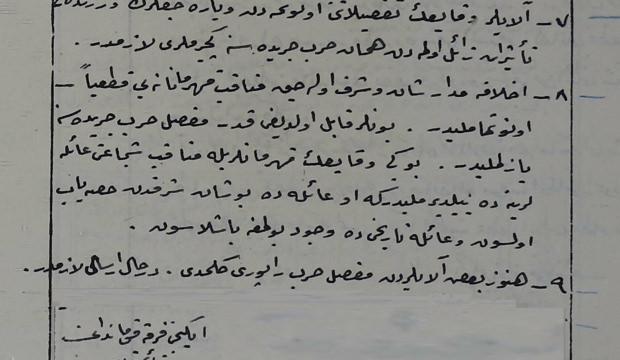 ٧ــ آلايلر وقايعك تفصيلاتنى اونوتمه دن وياره
تأثيراتى زائل اولمه دن همان حرب جريده سنه كچيرملرى لازمدر .
٨ــ اخلافه مدار شان وشرف اوله جق مناقب قهرمانانه يى قطعياً
اونوتماملیدر . بونلر قابل اولديغى قدر مفصل حرب جريده سنه
يازلمليدر . بوكى وقايعك قهرمانلريله مناقب شجاعتى عائله
لرينه ده بيلديرملیدركه او عائله ده بو شان وشرفدن حصه ياب
اولسون وعائله تاريخى ده وجود بولمغه باشلاسون .
٩ــ هنوز بعض آلايلردن مفصل حرب راپورى كلمدى . درحال ارسالى لازمدر .
ايكنجى فرقه قوماندانى